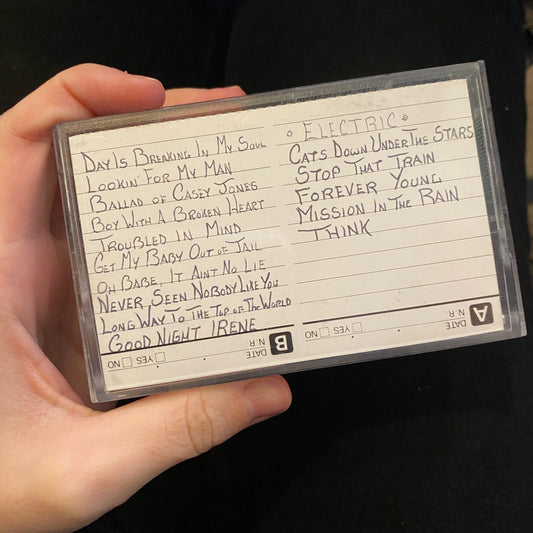 Day Is Breaking In My Soul
Lookin' For My Man
Ballad of Casey Jones
Boy With A Broken Heart
Troubled in Mind
Get My Baby Out of Jail
Oh Babe, It Aint No Lie
Never Seen Nobody Like You
Long Way To The Top of The World
Good Night Irene
B DATE N.R. YES NO
• ELECTRIC •
Cats Down Under The Stars
Stop That Train
Forever Young
Mission In The Rain
Think
A DATE N.R. YES NO